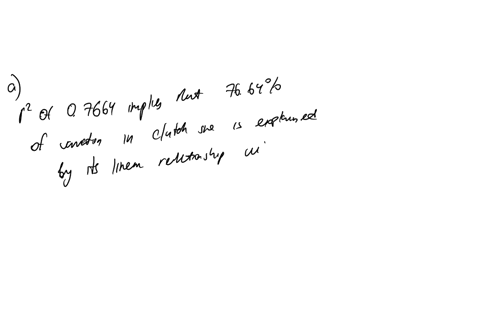 a)
r² of 0.7664 implies that 76.64%
of variation in clutch size is explained
by its linear relationship wi